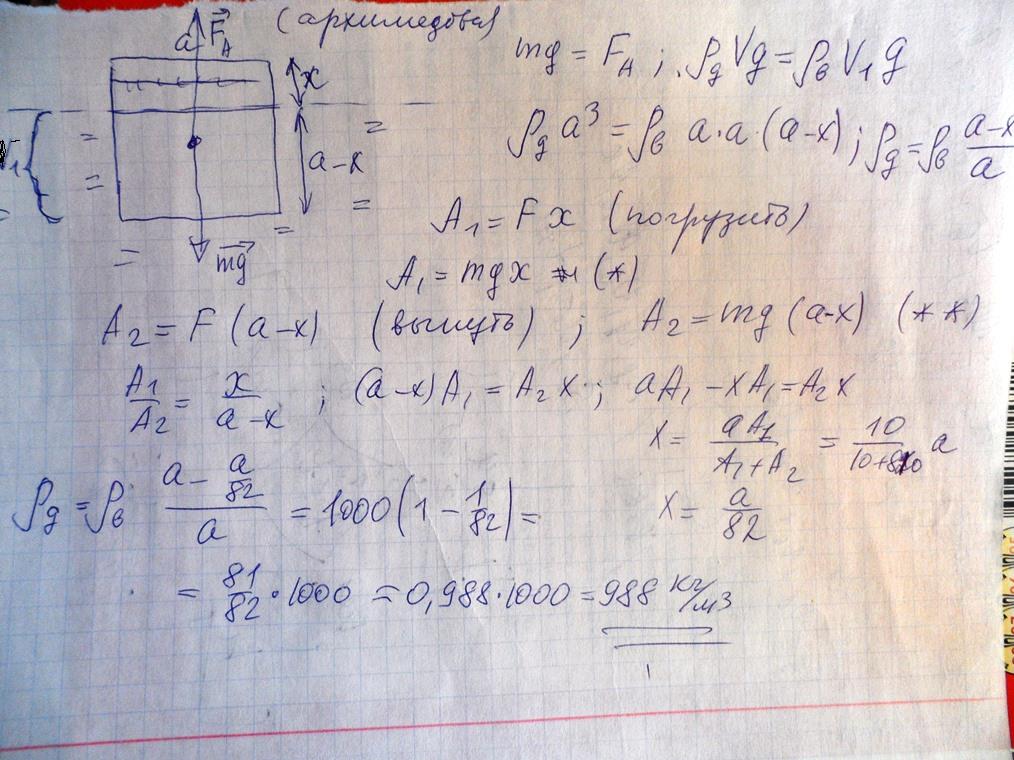 a F⃗A (архимедова)
mg = FA ; ρд Vg = ρв V₁ g
x
V₁
a-x
ρд a³ = ρв a·a·(a-x) ; ρд = ρв (a-x)/a
mg⃗
A₁ = F x (погрузить)
A₁ = mgx (*)
A₂ = F (a-x) (вынуть) ; A₂ = mg (a-x) (**)
A₁/A₂ = x/(a-x) ; (a-x)A₁ = A₂x ; aA₁ - xA₁ = A₂x
x = aA₁/(A₁+A₂) = 10/(10+810) a
ρд = ρв (a - a/82)/a = 1000(1 - 1/82) =
x = a/82
= 81/82 · 1000 = 0,988·1000 = 988 кг/м3